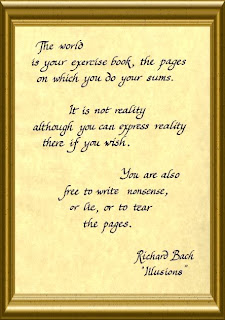 The world
is your exercise book, the pages
on which you do your sums.
It is not reality
although you can express reality
there if you wish.
You are also
free to write nonsense,
or lie, or to tear
the pages.
Richard Bach
"Illusions"